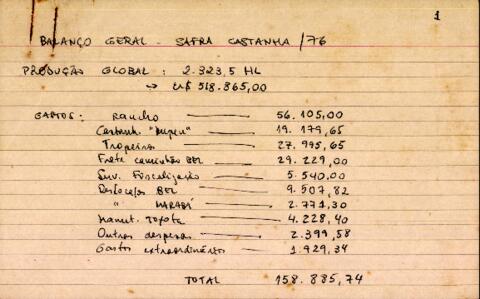 1
BALANÇO GERAL - SAFRA CASTANHA/76
PRODUÇÃO GLOBAL: 2.323,5 HL
→ CR$ 518.865,00
GASTOS: Rancho — 56.105,00
Castanh. — 19.179,65
Tropeiros — 27.995,65
Frete caminhão BEL — 29.229,00
Serv. Fiscalização — 5.540,00
Deslocações BEL — 9.507,82
" MARABÁ — 2.771,30
Manut. Toyota — 4.228,40
Outras despesas — 2.399,58
Gastos extraordinários — 1.929,34
TOTAL 158.885,74